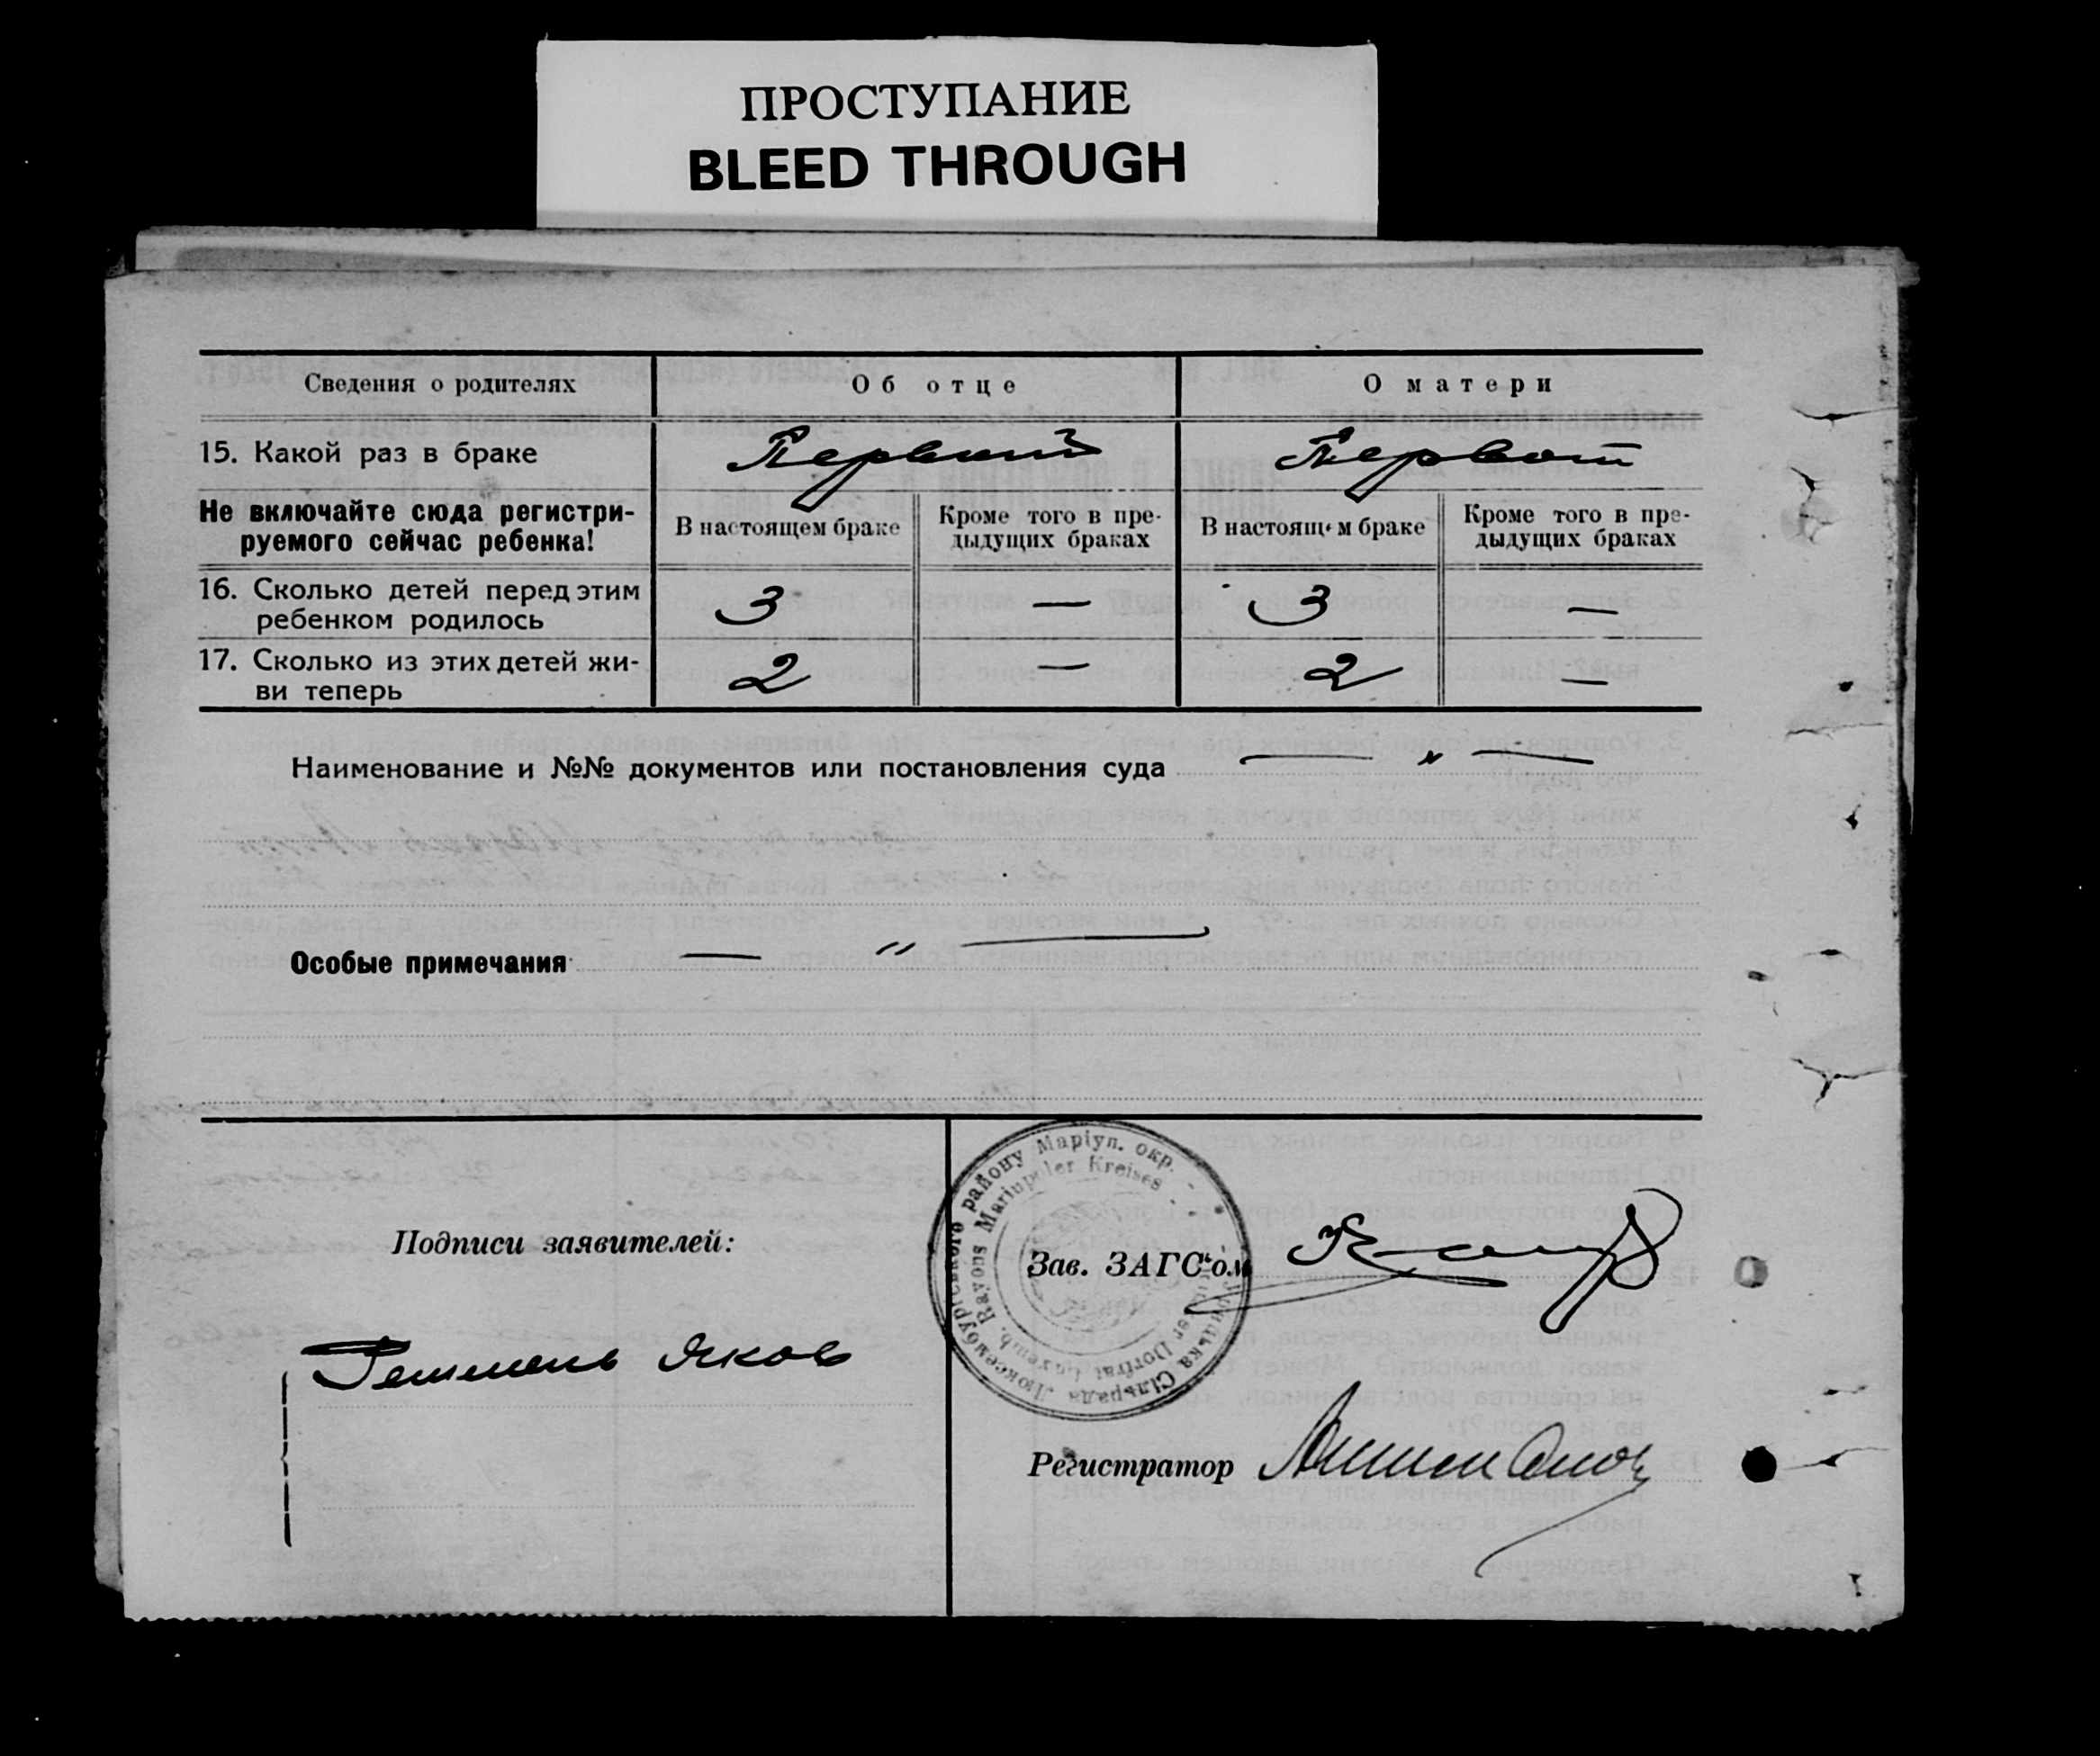 ПРОСТУПАНИЕ
BLEED THROUGH
Сведения о родителях
Об отце
О матери
15. Какой раз в браке
Первый
Первый
Не включайте сюда регистри-
руемого сейчас ребенка!
В настоящем браке
Кроме того в пре-
дыдущих браках
В настоящем браке
Кроме того в пре-
дыдущих браках
16. Сколько детей перед этим
ребенком родилось
3
—
3
—
17. Сколько из этих детей жи-
ви теперь
2
—
2
—
Наименование и №№ документов или постановления суда — " —
Особые примечания — " —
Подписи заявителей:
Яков
Зав. ЗАГС'ом
Регистратор
району Маріуп. окр.
Rayons Mariupoler Kreises
Сільрада Люксембургського
Dorfrat Luxemb.